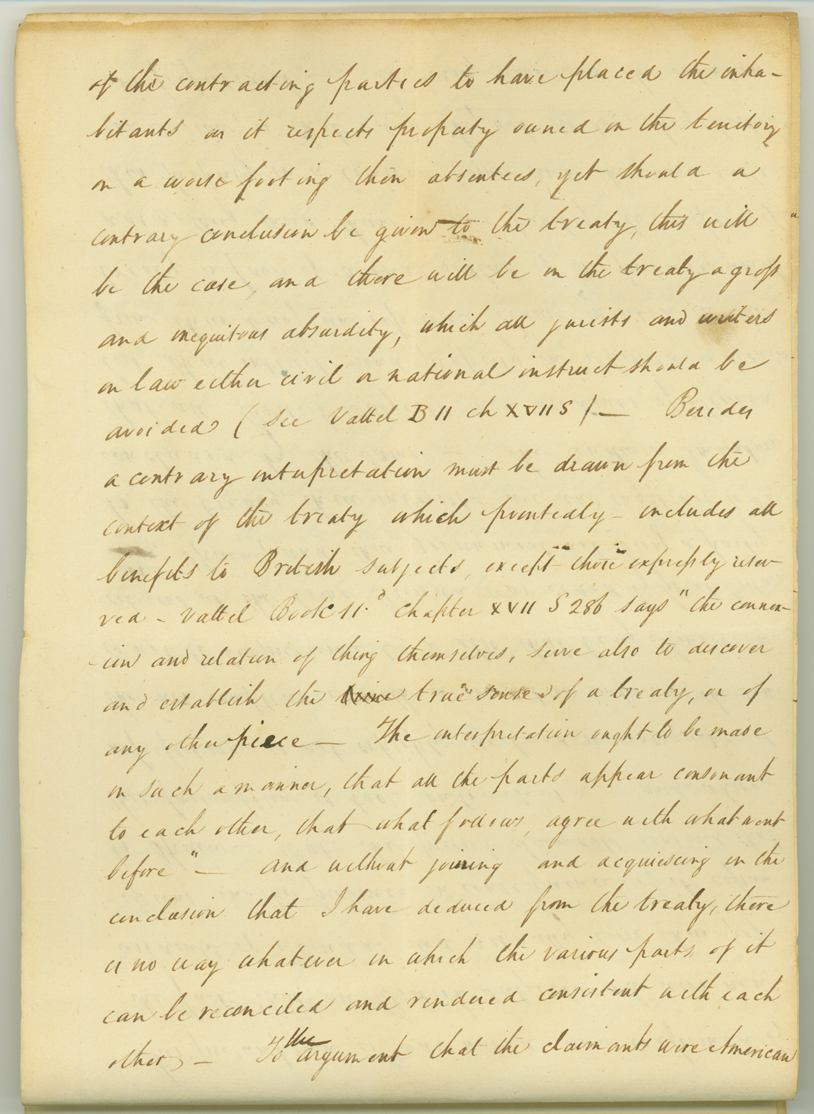 of the contracting parties to have placed the inha-
bitants as it respects property owned in the territory
on a worse footing than absentees, yet should a
contrary conclusion be given to the treaty, this will
be the case, and there will be in the treaty a gross
and iniquitous absurdity, which all jurists and writers
on law either civil or national instruct should be
avoided (See Vattel B II ch XVII S ) — Besides
a contrary interpretation must be drawn from the
context of the treaty which pointedly - includes all
benefits to British subjects, except those expressly reser-
ved - Vattel Book II.d chapter XVII S 286 says "the connex-
-ion and relation of thing themselves, serve also to discover
and establish the true sense of a treaty, or of
any other piece — The interpretation ought to be made
in such a manner, that all the parts appear consonant
to each other, that what follows, agree with what went
before" — And without joining and acquiescing in the
conclusion that I have deduced from the treaty, there
is no way whatever in which the various parts of it
can be reconciled and rendered consistent with each
other) — To the argument that the claimants were American